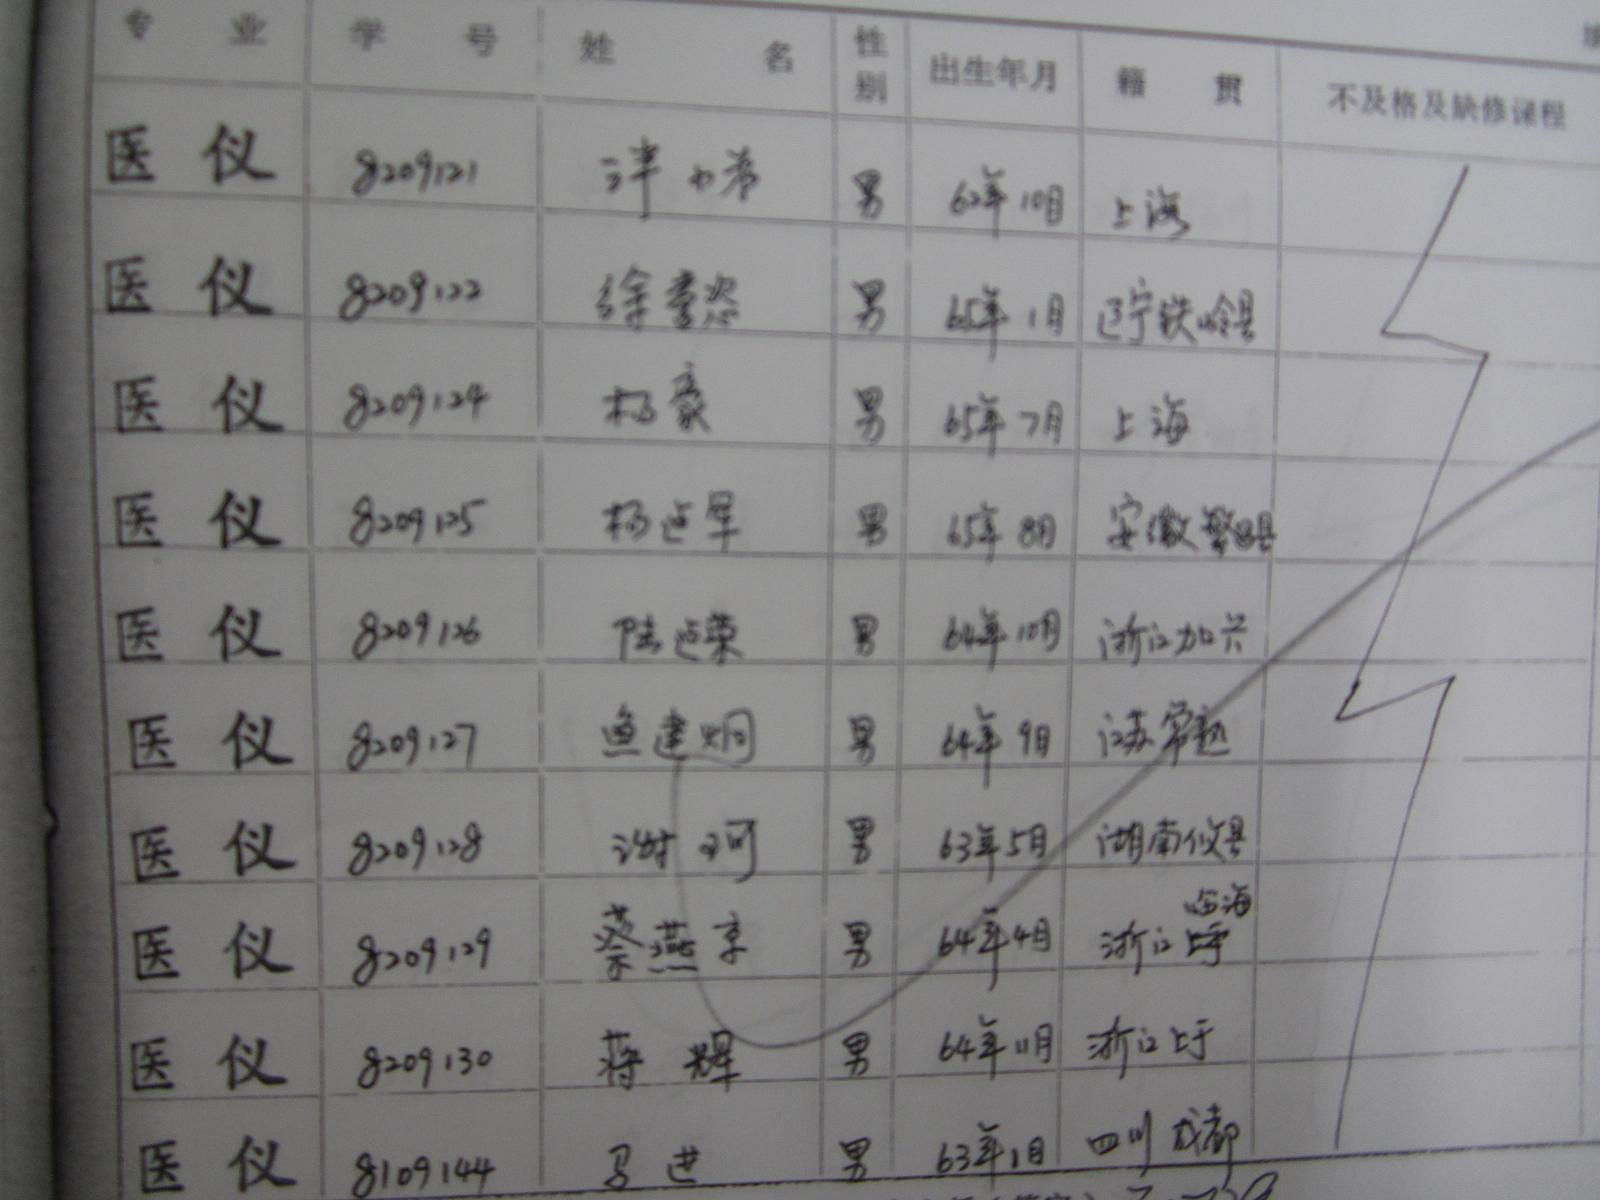 专 业 学 号 姓 名 性别 出生年月 籍 贯 不及格及缺修课程
医 仪 8209121 男 62年10月 上海
医 仪 8209122 徐 男 65年1月 辽宁铁岭县
医 仪 8209124 杨豪 男 65年7月 上海
医 仪 8209125 杨 军 男 65年8月 安徽繁昌县
医 仪 8209126 陆 荣 男 64年10月 浙江加兴
医 仪 8209127 鱼建炯 男 64年9月 江苏常熟
医 仪 8209128 谢 珂 男 63年5月 湖南攸县
医 仪 8209129 蔡燕京 男 64年4月 浙江临海
医 仪 8209130 蒋辉 男 64年11月 浙江上于
医 仪 8109144 马进 男 63年1月 四川成都